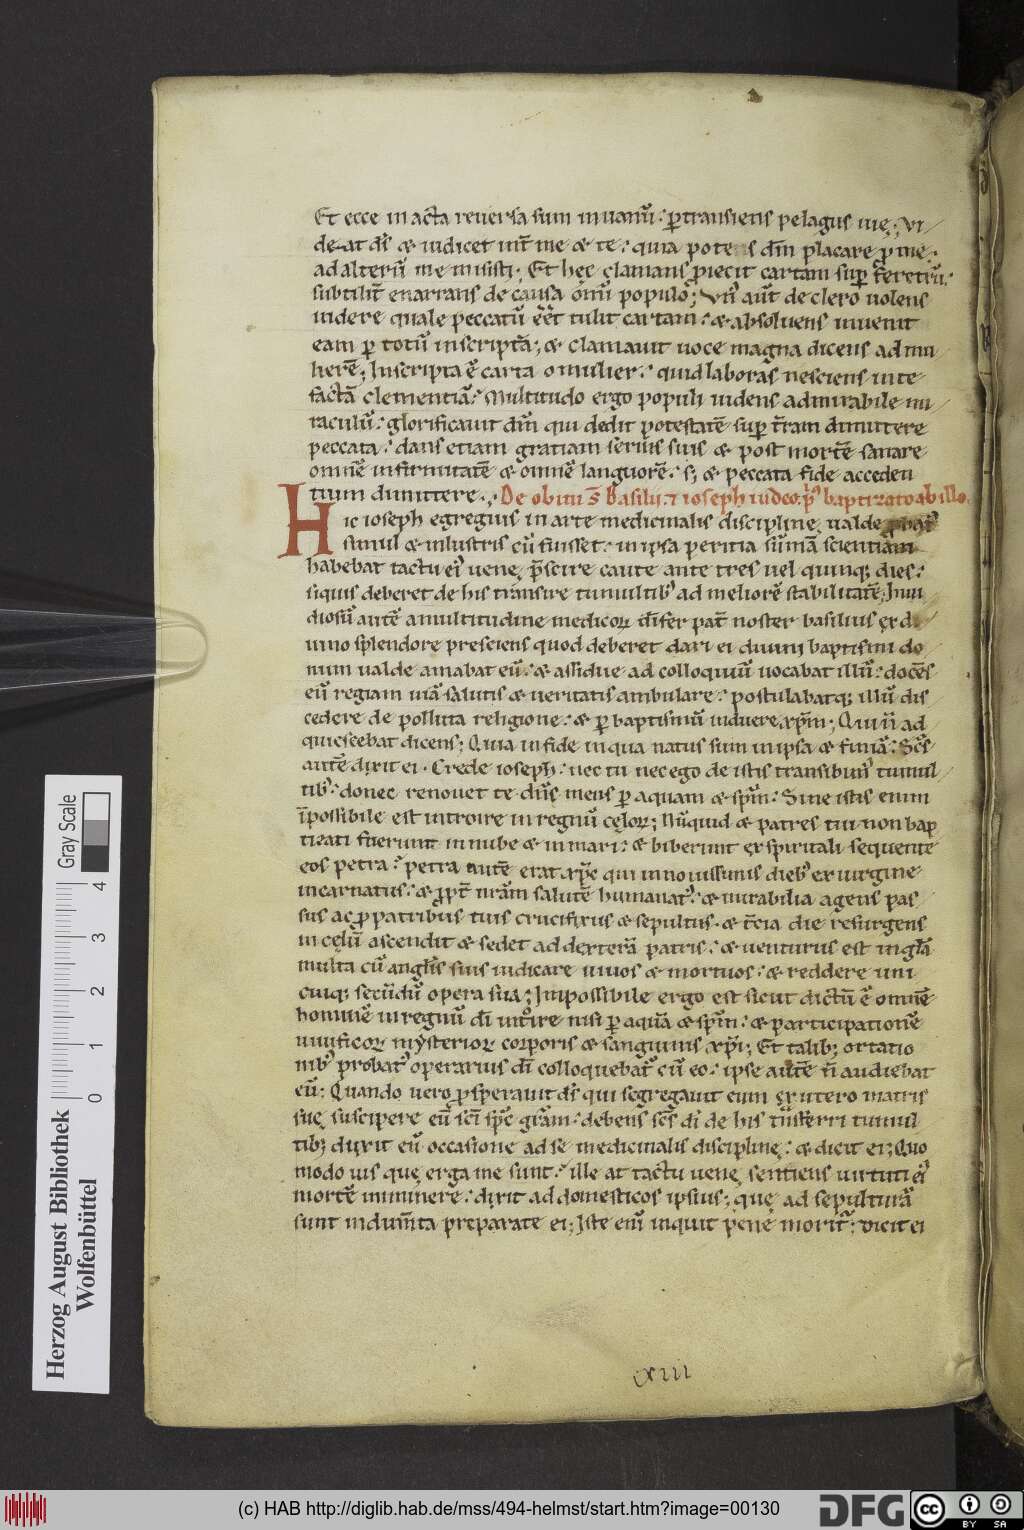 Et ecce in acta reuersa sum inuanū. ꝑtransiens pelagus uie; Vi
deat ds̄ & iudicet int̄ me & te. quia potens dn̄m placare ꝓ me.
ad alterū me misisti; Et hęc clamans proiecit cartam suꝑ feretrū.
subtilit̄ enarrans de causa om̄i populo; Vnꝰ aūt de clero uolens
uidere quale peccatū eēt tulit cartam. & absoluens inuenit
eam ꝑ totū inscriptā; & clamauit uoce magna dicens ad mu
lierē; Inscripta ē carta o mulier. quid laboras nesciens in te
factā clementiā. Multitudo ergo populi uidens admirabile mi
raculū. glorificauit dm̄ qui dedit potestatē suꝑ t̄ram dimittere
peccata. dans etiam gratiam seruis suis & post mortē sanare
omnē infirmitatē & omnē languorē. s; & peccata fide acceden
tium dimittere. De obitu s̄ Basilii. ⁊ ioseph iudeo pꝰ baptizato ab illo.
Hic ioseph egregius in arte medicinalis discipline ualde
simul & inlustris cū fuisset. in ipsa peritia sūmā scientiam
habebat tactu eiꝰ uene p̄scire caute ante tres uel quinq; dies.
siquis deberet de his transire tumultibꝰ ad meliorē stabilitatē; Inui
diosū autē a multitudine medicoꝝ d̄ifer pat̄ noster basilius ex di
uino splendore presciens quod deberet dari ei diuini baptismi do
num ualde amabat eū. & assidue ad colloquiū uocabat illū. docēs
eū regiam uiā salutis & ueritatis ambulare. postulabatq; illū dis
cedere de polluta religione. & ꝑ baptismū induere xp̄m; Qui ñ ad
quiescebat dicens; Quia in fide in qua natus sum in ipsa & finiā. Scs̄
autē dixit ei. Crede ioseph. nec tu nec ego de istis transibimꝰ tumul
tibꝰ. donec renouet te dn̄s meus ꝑ aquam & sp̄m. Sine istis enim
īpossibile est introire in regnū cęloꝝ; Nūquid & patres tui non bap
tizati fuerunt in nube & in mari. & biberunt ex spirituali sequente
eos petra. petra autē erat xp̄c qui in nouissimis diebꝰ ex uirgine
incarnatus. & ꝓpt̄ nr̄am salutē humanatꝰ. & mirabilia agens pas
sus ac ꝓ patribus tuis crucifixus & sepultus. & t̄cia die resurgens
in celū ascendit & sedet ad dexterā patris. & uenturus est in gl̄a
multa cū angl̄is suis iudicare uiuos & mortuos. & reddere uni
cuiq; secūdū opera sua; Impossibile ergo est sicut dictū ē omnē
hominē in regnū dī introire nisi ꝑ aquā & sp̄m. & participationē
uiuificoꝝ mẏsterioꝝ corporis & sanguinis xp̄i; Et talib; ortatio
nibꝰ probatꝰ operarius dī colloquebat̄ cū eo. ipse autē n̄ audiebat
eū; Quando uero ꝓsperauit ds̄ qui segregauit eum ex utero matris
sue suscipere eū sc̄i sp̄c gr̄am. debens scs̄ dī de his t̄nsferri tumul
tib; dixit eū occasione ad se medicinalis discipline. & dicit ei; Quo
modo uis que erga me sunt. ille at tactu uene sentiens uirtuti eiꝰ
mortē iminere. dixit ad domesticos ipsius; que ad sepulturā
sunt indum̄ta preparate ei; Iste eni inquit pene morit̄. dicit ei
xiii
Gray Scale
0 1 2 3 4
Herzog August Bibliothek
Wolfenbüttel
(c) HAB http://diglib.hab.de/mss/494-helmst/start.htm?image=00130
DFG
cc BY SA